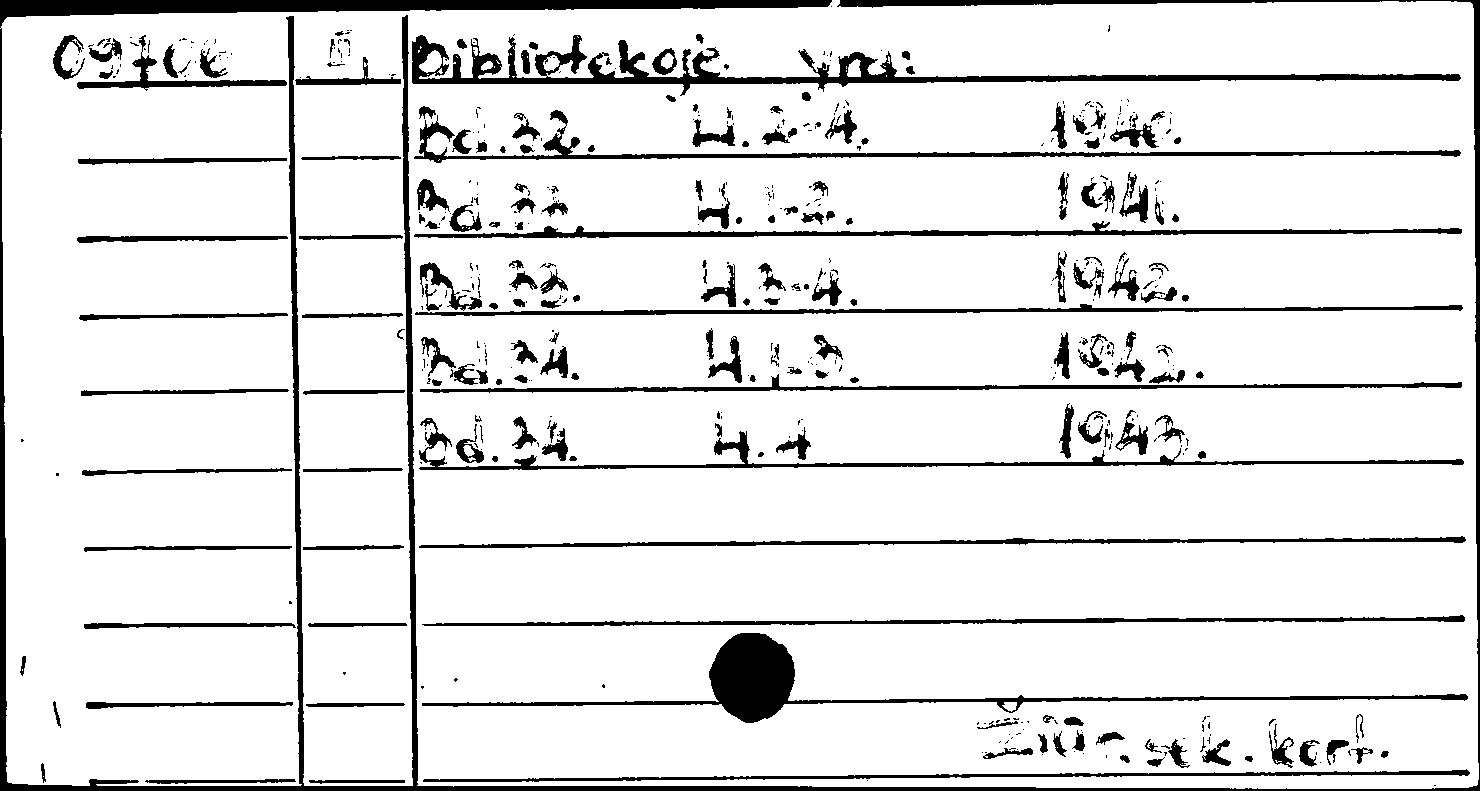 09706 III, Bibliotekoje yra:
Bd. 32. H. 2-4. 1940.
Bd. 33. H. 1-2. 1941.
Bd. 33. H. 3-4. 1942.
Bd. 34. H. 1-3. 1942.
Bd. 34. H. 4 1943.
Žiūr. sek. kort.